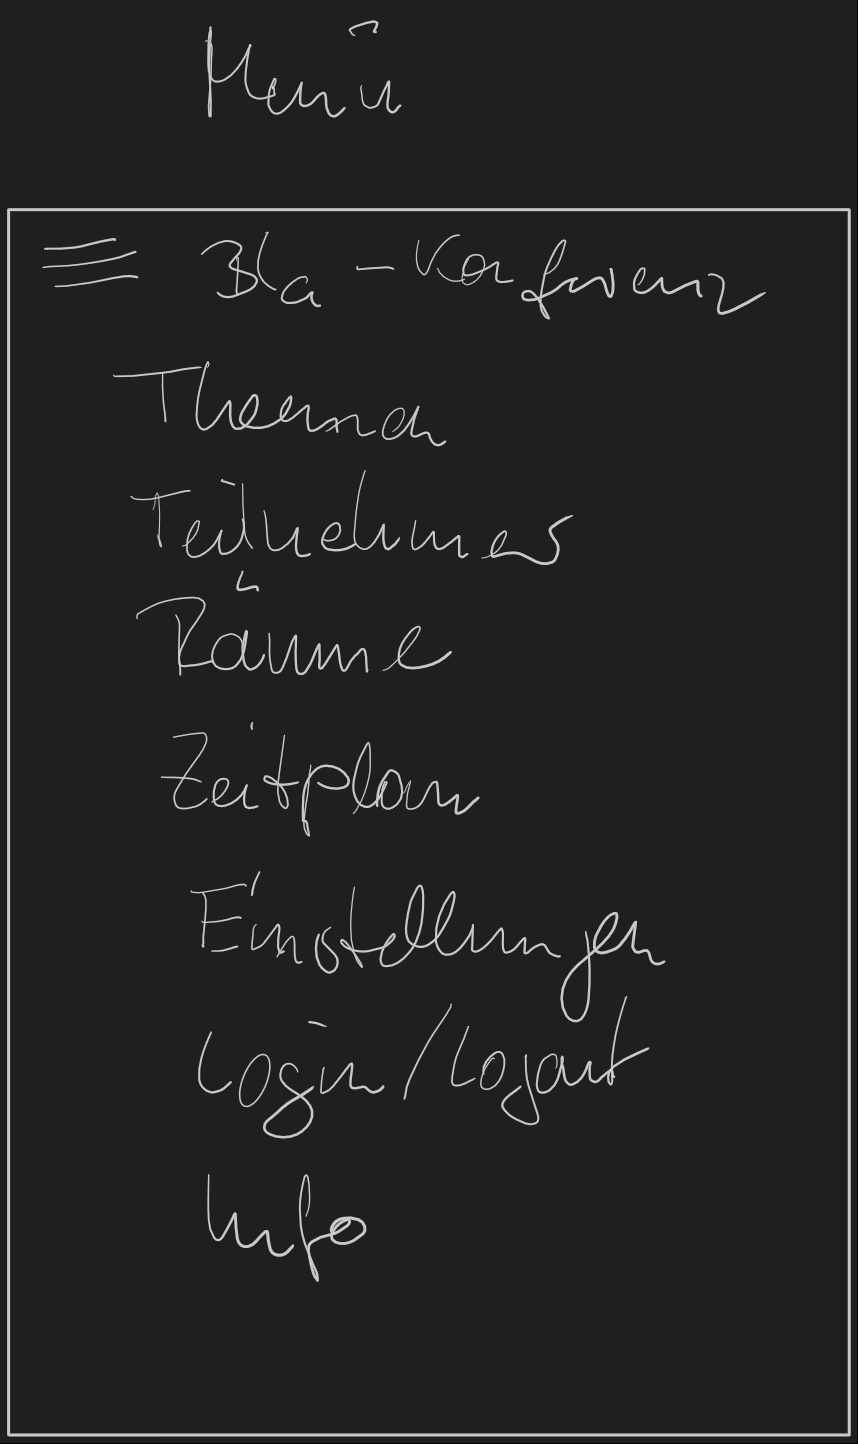 Menü
Bla-Konferenz
Themen
Teilnehmer
Räume
Zeitplan
Einstellungen
Login/Logout
Info